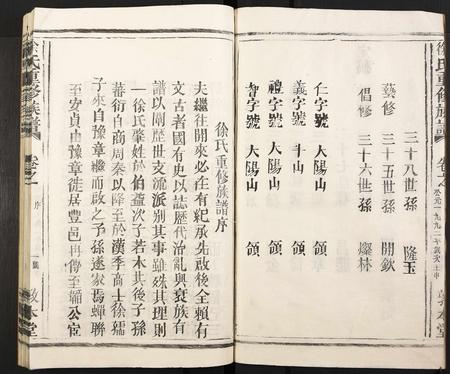 徐氏重修族譜
卷之一
公元一九九二年歲次壬申
三十八世孫 隆玉
裝修 三十五世孫 開欽
倡修 三十六世孫 燦林
仁字號 大陽山 領
義字號 斗山 領
禮字號 大陽山 領
智字號 大陽山 領
徐氏重修族譜序
夫繼往開來必在有紀承先啟後全賴有
文古者國有史以誌歷代治亂與衰族有
譜以闡歷世支流派別其事雖殊其理則
一徐氏肇姓於伯益次子若木其後子孫
蕃衍自商周秦以降至於漢季高士徐孺
子來自豫章繼而啟之子孫遂家焉蟬聯
至安貞由豫章徙居豐邑再傳至
公宦
徐氏重修族譜
卷之一
序
敦本堂